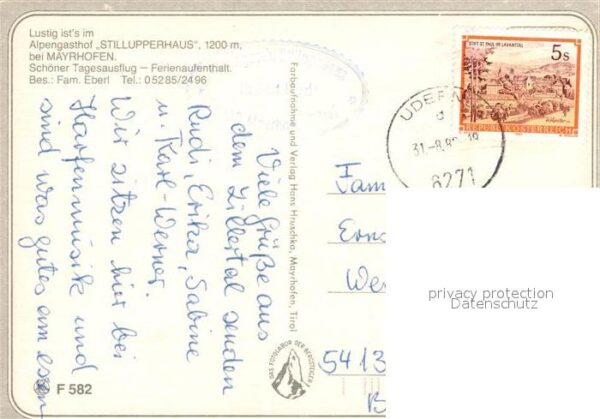 Lustig ist's im
Alpengasthof „STILLUPPERHAUS", 1200 m,
bei MAYRHOFEN.
Schöner Tagesausflug – Ferienaufenthalt.
Bes.: Fam. Eberl Tel.: 05285/2496
Viele Grüße aus
dem Zillertal senden
Rudi, Erika, Sabine
u. Karl-Werner.
Wir sitzen hier bei
Harfenmusik und
sind was gutes am essen
F 582
Farbaufnahme und Verlag Hans Hruschka, Mayrhofen, Tirol
DAS FOTOLABOR DER BERGSTEIGER
STIFT ST. PAUL IM LAVANTTAL
5s
REPUBLIK ÖSTERREICH
UDER
31.-8.8
6271
Fam
5413
privacy protection
Datenschutz